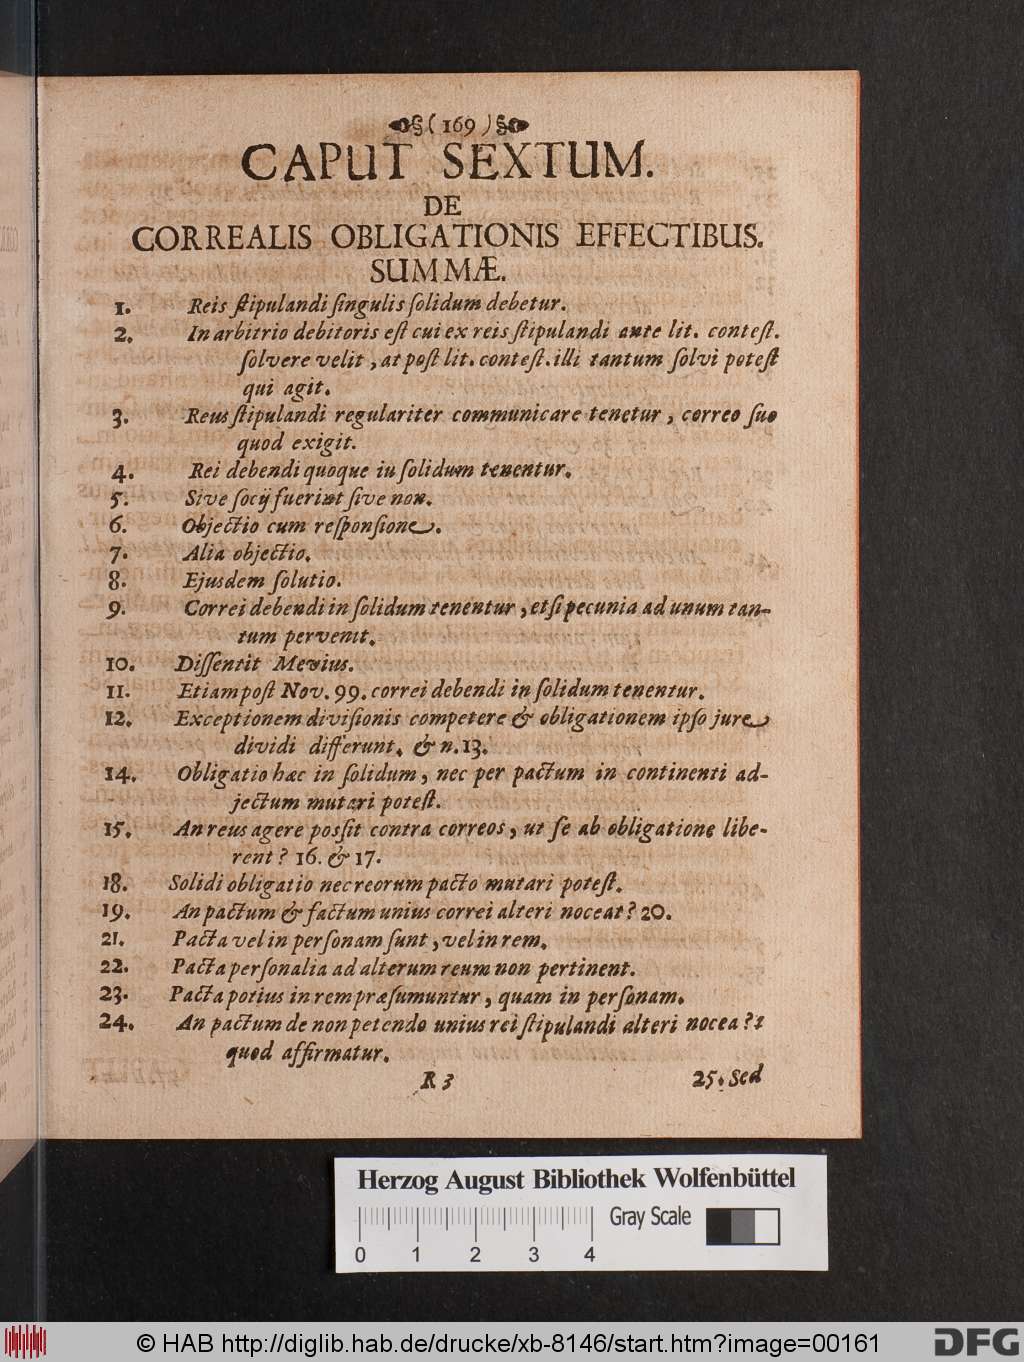 ( 169 )
CAPUT SEXTUM.
DE
CORREALIS OBLIGATIONIS EFFECTIBUS.
SUMMÆ.
1. Reis ſtipulandi ſingulis ſolidum debetur.
2. In arbitrio debitoris eſt cui ex reis ſtipulandi ante lit. conteſt.
ſolvere velit, at poſt lit. conteſt. illi tantum ſolvi poteſt
qui agit.
3. Reus ſtipulandi regulariter communicare tenetur, correo ſuo
quod exigit.
4. Rei debendi quoque in ſolidum tenentur.
5. Sive ſocij fuerint ſive non.
6. Objectio cum reſponſione.
7. Alia objectio.
8. Ejusdem ſolutio.
9. Correi debendi in ſolidum tenentur, etſi pecunia ad unum tan-
tum pervenit.
10. Diſſentit Mevius.
11. Etiam poſt Nov. 99. correi debendi in ſolidum tenentur.
12. Exceptionem diviſionis competere & obligationem ipſo jure
dividi differunt. & n. 13.
14. Obligatio hæc in ſolidum, nec per pactum in continenti ad-
jectum mutari poteſt.
15. An reus agere posſit contra correos, ut ſe ab obligatione libe-
rent? 16. & 17.
18. Solidi obligatio nec reorum pacto mutari poteſt.
19. An pactum & factum unius correi alteri noceat? 20.
21. Pacta vel in perſonam ſunt, vel in rem.
22. Pacta perſonalia ad alterum reum non pertinent.
23. Pacta potius in rem præſumuntur, quam in perſonam.
24. An pactum de non petendo unius rei ſtipulandi alteri nocea?t
quod affirmatur.
R 3 25. Sed
Herzog August Bibliothek Wolfenbüttel
Gray Scale
0 1 2 3 4
© HAB http://diglib.hab.de/drucke/xb-8146/start.htm?image=00161
DFG